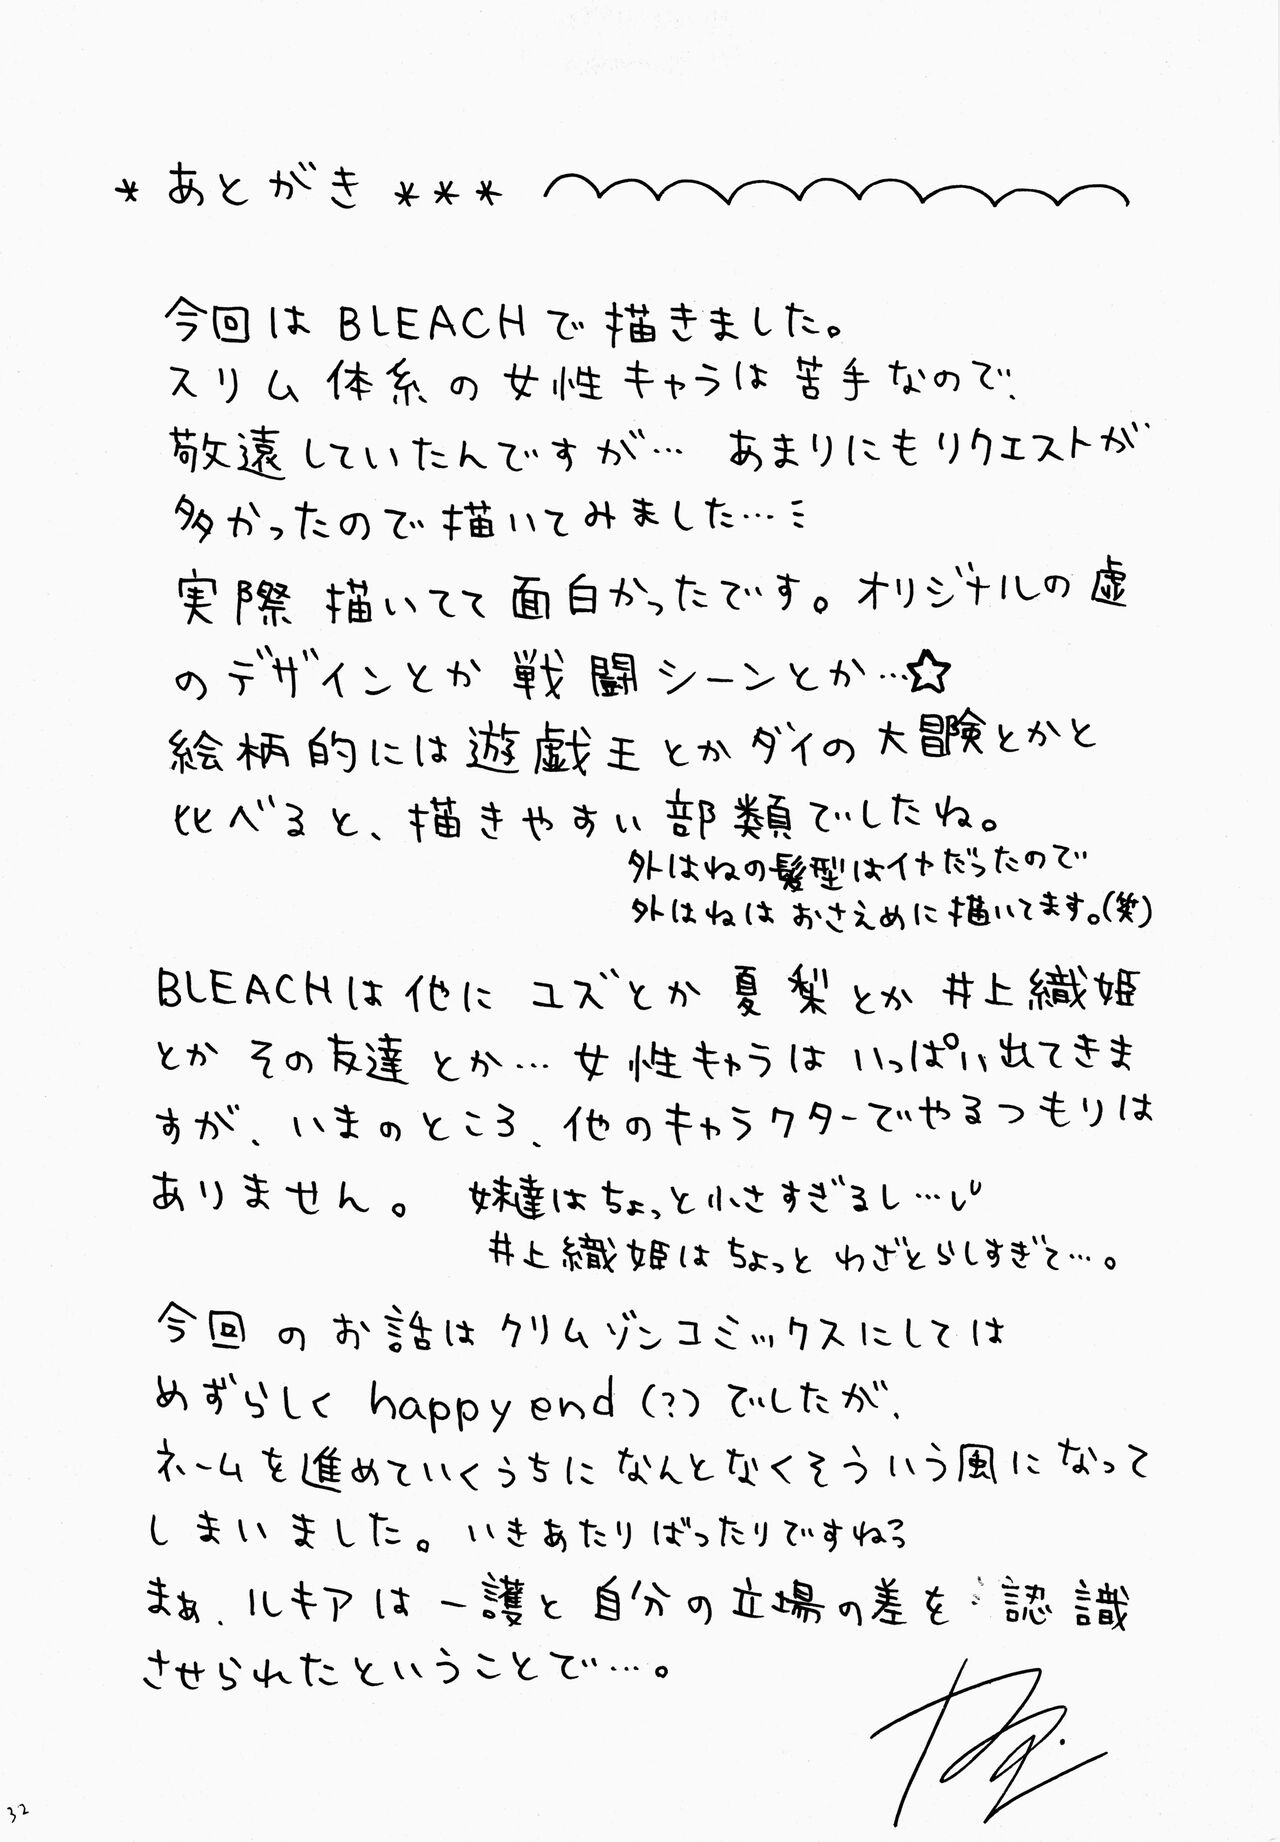 * あとがき ***
今回は BLEACHで描きました。
スリム体系の女性キャラは苦手なので、
敬遠していたんですが… あまりにもリクエストが
多かったので描いてみました…
実際描いてて面白かったです。オリジナルの虚
のデザインとか戦闘シーンとか…☆
絵柄的には遊戯王とかダイの大冒険とかと
比べると、描きやすい部類でしたね。
外はねの髪型はイヤだったので
外はねはおさえめに描いてます。(笑)
BLEACHは他に ユズとか 夏梨とか 井上織姫
とか その友達とか… 女性キャラは いっぱい出てきま
すが、いまのところ、他のキャラクターでやるつもりは
ありません。 妹達はちょっと小さすぎるし…
井上織姫はちょっと わざとらしすぎて…。
今回のお話はクリムゾンコミックスにしては
めずらしく happy end (?) でしたが、
ネームを進めていくうちになんとなくそういう風になって
しまいました。いきあたりばったりですねろ
まぁ、ルキアは一護と自分の立場の差を 認識
させられたということで…。
32